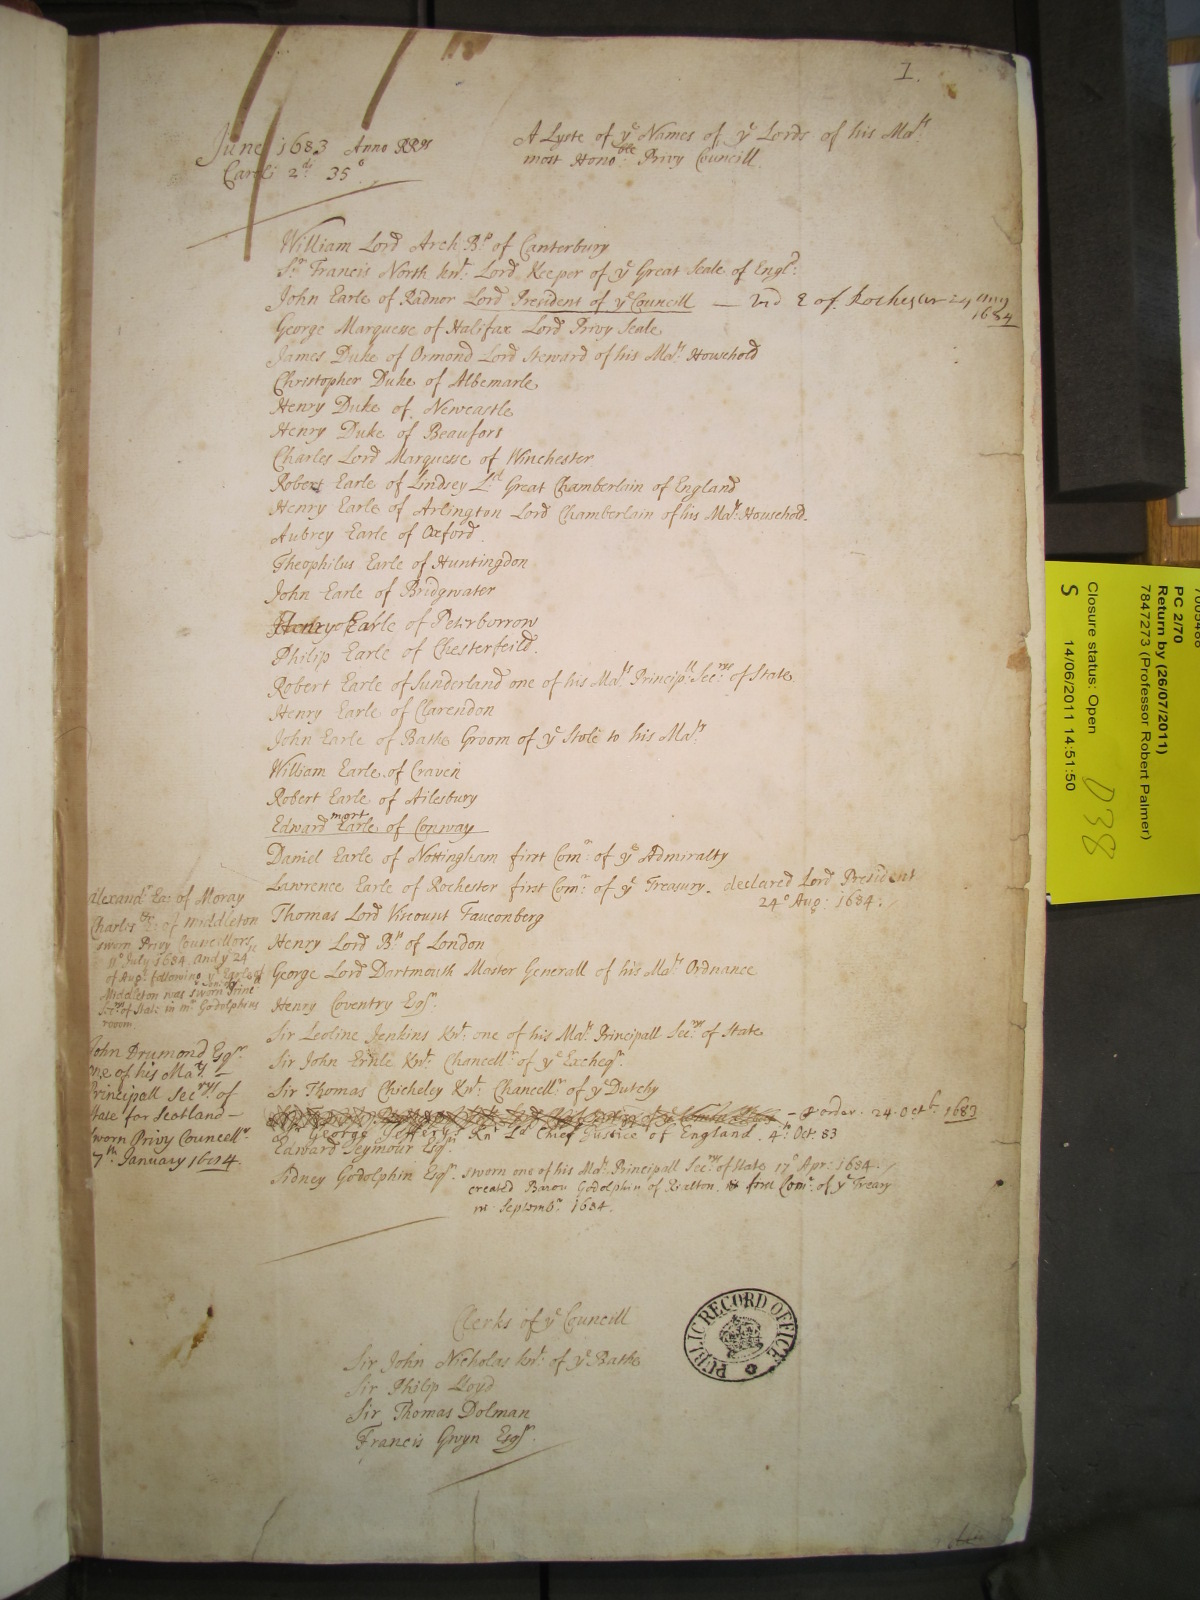 1.
June 1683 Anno RRs
Caroli 2di 35o
A Lyste of ye Names of ye Lords of his Mats
most Honoble Privy Councill.
William Lord Arch Bp of Canterbury
Sr Francis North knt Lord Keeper of ye Great Seale of Engld:
John Earle of Radnor Lord President of ye Councill — vid E of Rochester 24 Aug
1684
George Marquesse of Halifax Lord Privy Seale
James Duke of Ormond Lord Steward of his Mats Household
Christopher Duke of Albemarle
Henry Duke of Newcastle
Henry Duke of Beaufort
Charles Lord Marquesse of Winchester
Robert Earle of Lindsey Ld Great Chamberlain of England
Henry Earle of Arlington Lord Chamberlain of his Mats Household.
Aubrey Earle of Oxford.
Theophilus Earle of Huntingdon
John Earle of Bridgwater
Henry Earle of Peterborrow
Philip Earle of Chesterfeild.
Robert Earle of Sunderland one of his Mats Principll Secrys of State
Henry Earle of Clarendon
John Earle of Bathe Groom of ye Stole to his Maty
William Earle of Craven
Robert Earle of Ailesbury
mort
Edward Earle of Conway
Daniel Earle of Nottingham first Comr of ye Admiralty
Lawrence Earle of Rochester first Comr of ye Treasury. declared Lord President
24o Aug: 1684.
Thomas Lord Viscount Fauconberg
Henry Lord Bp of London
George Lord Dartmouth Master Generall of his Mats Ordnance
Henry Coventry Esqr.
Sir Leoline Jenkins Knt: one of his Mats Principall Secrys of State
Sir John Ernle Knt: Chancellr of ye Excheqr.
Sir Thomas Chicheley Knt: Chancellr of ye Dutchy
order. 24. Octb. 1683
Sr George Jefferys Knt Ld Chief Justice of England. 4th Oct 83
Edward Seymour Esqr.
Sidney Godolphin Esqr. sworn one of his Mats Principall Secrys of State 17o Apr: 1684.
created Baron Godolphin of Rialton. & first Comr of ye Treary
in Septembr 1684.
Alexandr Ea: of Moray
Charles Ea: of Middleton
sworn Privy Councellors,
11o July 1684. and ye 24
of Augt following ye Earle of
Middleton was sworn Princ
Secry of State in Mr Godolphins
room
John Drumond Esqr.
one of his Mats.
Principall Secrys of
State for Scotland—
Sworn Privy Councellr.
7th January 1684.
Clerks of ye Councill
Sir John Nicholas knt: of ye Bathe
Sir Philip Lloyd
Sir Thomas Dolman
Francis Gwyn Esqr.
PUBLIC RECORD OFFICE
PC 2/70
Return by (26/07/2011)
7847273 (Professor Robert Palmer)
Closure status: Open
S 14/06/2011 14:51:50
D38